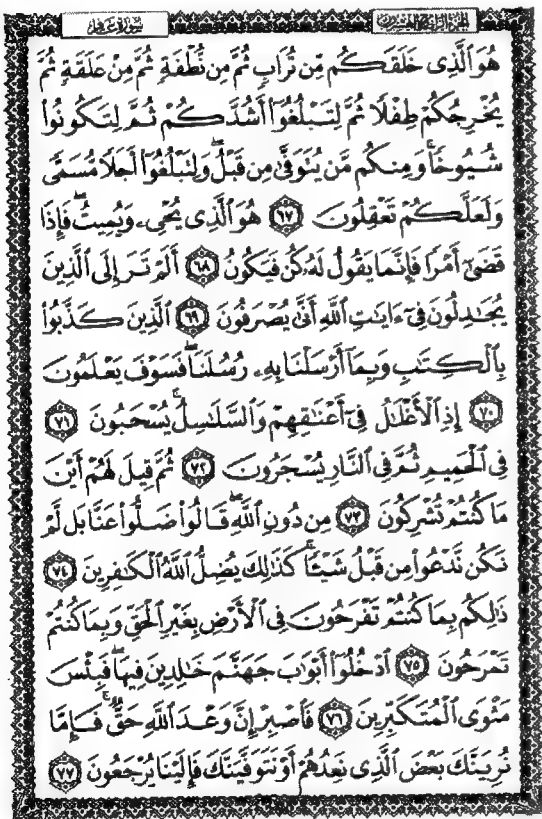 الجزء الرابع والعشرون
سورة غافر
هُوَ ٱلَّذِى خَلَقَكُم مِّن تُرَابٍ ثُمَّ مِن نُّطْفَةٍ ثُمَّ مِنْ عَلَقَةٍ ثُمَّ
يُخْرِجُكُمْ طِفْلًا ثُمَّ لِتَبْلُغُوٓا۟ أَشُدَّكُمْ ثُمَّ لِتَكُونُوا۟
شُيُوخًا ۚ وَمِنكُم مَّن يُتَوَفَّىٰ مِن قَبْلُ ۖ وَلِتَبْلُغُوٓا۟ أَجَلًا مُّسَمًّى
وَلَعَلَّكُمْ تَعْقِلُونَ ٦٧ هُوَ ٱلَّذِى يُحْىِۦ وَيُمِيتُ ۖ فَإِذَا
قَضَىٰٓ أَمْرًا فَإِنَّمَا يَقُولُ لَهُۥ كُن فَيَكُونُ ٦٨ أَلَمْ تَرَ إِلَى ٱلَّذِينَ
يُجَـٰدِلُونَ فِىٓ ءَايَـٰتِ ٱللَّهِ أَنَّىٰ يُصْرَفُونَ ٦٩ ٱلَّذِينَ كَذَّبُوا۟
بِٱلْكِتَـٰبِ وَبِمَآ أَرْسَلْنَا بِهِۦ رُسُلَنَا ۖ فَسَوْفَ يَعْلَمُونَ
٧٠ إِذِ ٱلْأَغْلَـٰلُ فِىٓ أَعْنَـٰقِهِمْ وَٱلسَّلَـٰسِلُ يُسْحَبُونَ ٧١
فِى ٱلْحَمِيمِ ثُمَّ فِى ٱلنَّارِ يُسْجَرُونَ ٧٢ ثُمَّ قِيلَ لَهُمْ أَيْنَ
مَا كُنتُمْ تُشْرِكُونَ ٧٣ مِن دُونِ ٱللَّهِ ۖ قَالُوا۟ ضَلُّوا۟ عَنَّا بَل لَّمْ
نَكُن نَّدْعُوا۟ مِن قَبْلُ شَيْـًٔا ۚ كَذَٰلِكَ يُضِلُّ ٱللَّهُ ٱلْكَـٰفِرِينَ ٧٤
ذَٰلِكُم بِمَا كُنتُمْ تَفْرَحُونَ فِى ٱلْأَرْضِ بِغَيْرِ ٱلْحَقِّ وَبِمَا كُنتُمْ
تَمْرَحُونَ ٧٥ ٱدْخُلُوٓا۟ أَبْوَٰبَ جَهَنَّمَ خَـٰلِدِينَ فِيهَا ۖ فَبِئْسَ
مَثْوَى ٱلْمُتَكَبِّرِينَ ٧٦ فَٱصْبِرْ إِنَّ وَعْدَ ٱللَّهِ حَقٌّ ۚ فَإِمَّا
نُرِيَنَّكَ بَعْضَ ٱلَّذِى نَعِدُهُمْ أَوْ نَتَوَفَّيَنَّكَ فَإِلَيْنَا يُرْجَعُونَ ٧٧